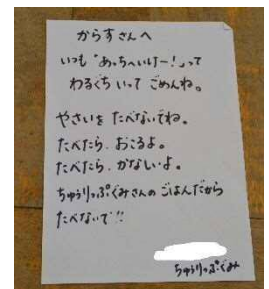 からすさんへ
いつも「あっちへいけー!」って
わるくち いって ごめんね。
やさいを たべないでね。
たべたら、おこるよ。
たべたら、かなしいよ。
ちゅうりっぷぐみさんの ごはんだから
たべないで!!
ちゅうりっぷぐみ